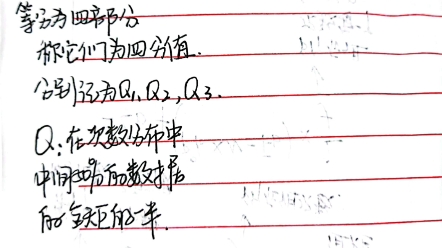 等分为四部分
称它们为四分值.
分别记为Q₁, Q₂, Q₃.
Q:在次数分布中
中间50%的数据
的全距的一半.